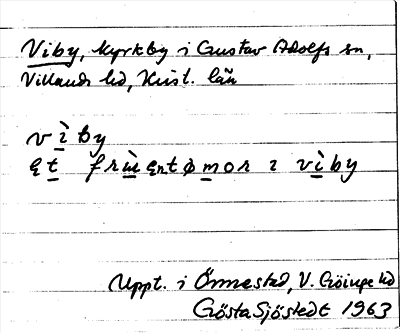 Viby, kyrkby i Gustav Adolfs sn,
Villands hd, Krist. län
vìby
et frìmentømor i vìby
Uppt. i Önnestad, V. Göinge hd
Gösta Sjöstedt 1963